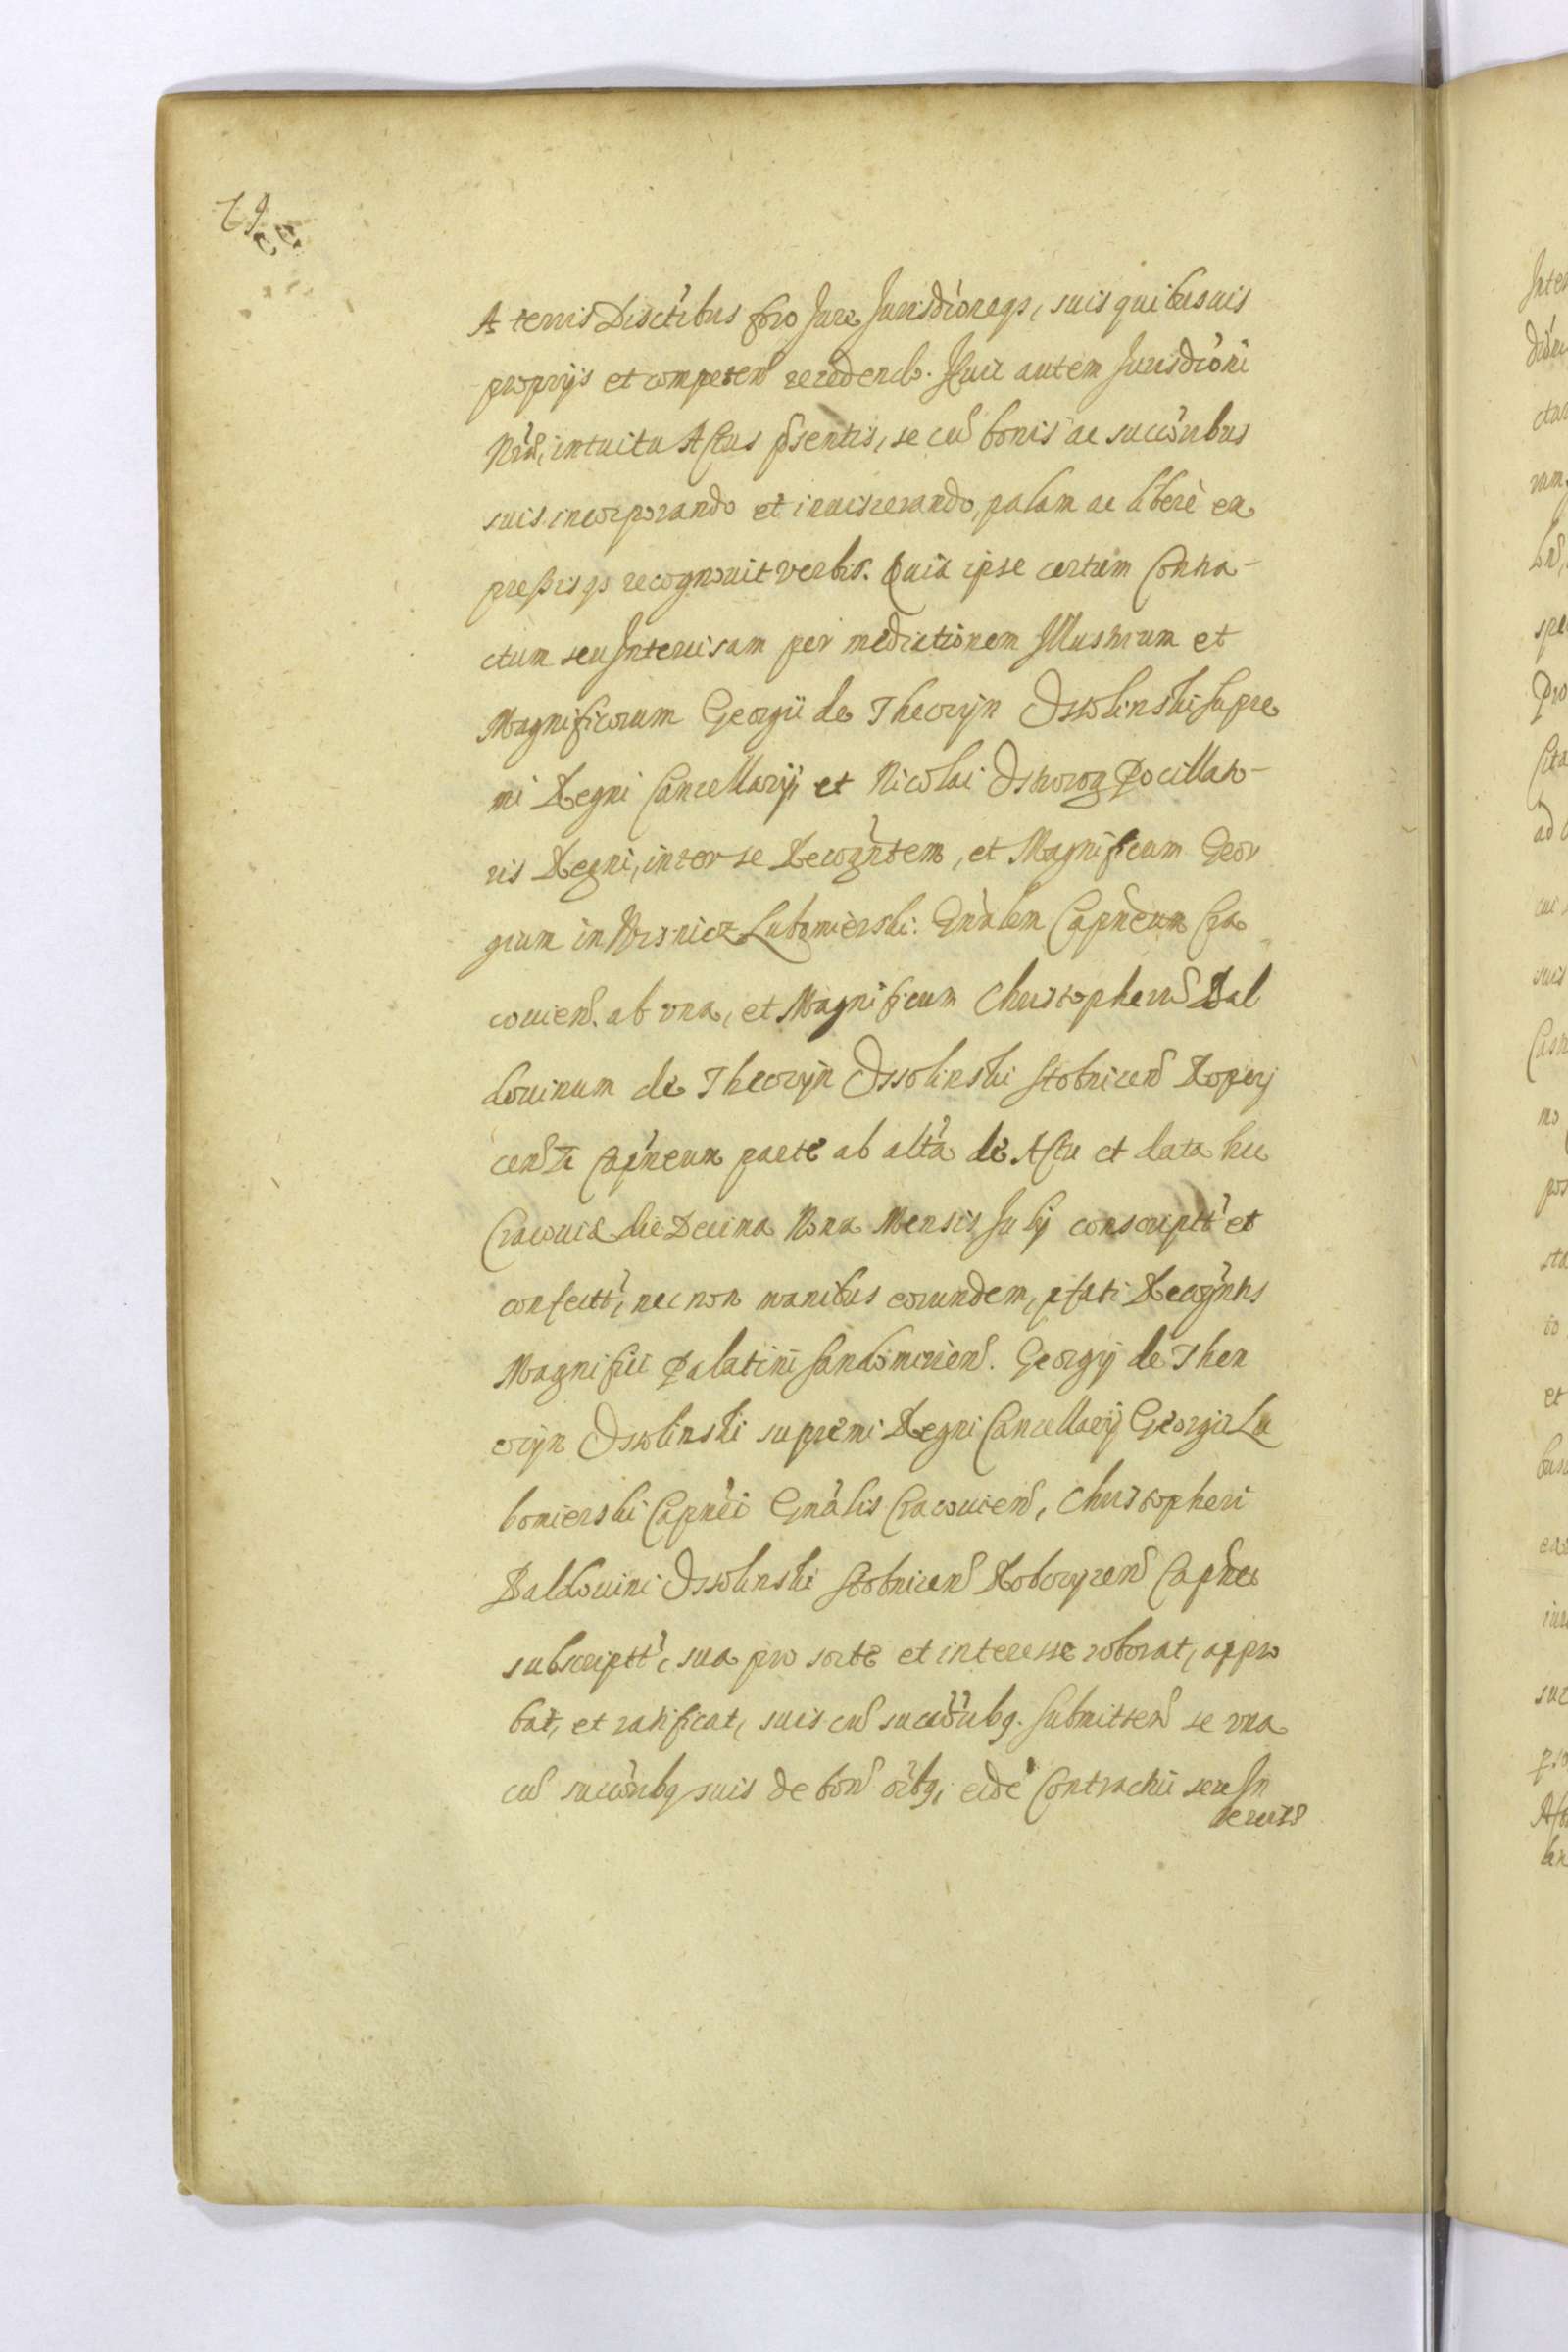 A terris Disctibus foro Jure Jurisdioneqz, suis quibusuis
proprijs et competen recedendo. Huic autem Jurisdioni
Nrae, intuitu Actus pñsentis, se cũ bonis ac succoribus
suis incorporando et inuiscerando, palam ac liberè ex
pressisqz recognouit verbis. Quia ipse certum Contra-
ctum seu Intercisam per mediationem Illustrium et
Magnificorum Georgii de Theczyn Ossolinski Supre
mi Regni Cancellarij et Nicolai Ostrorog Pocillato-
ris Regni, inter se Recogntem, et Magnificum Geor
gium in Wisnicz Lubomierski Gnalem Capneum Cra
couien. ab vna, et Magnificum Christopherũ Bal
douinum de Theczyn Ossolinski Stobnicen Ropczy
cenqz Capneum parte ab altã de Actu et data hic
Cracouiæ die Decima Nona Mensis July conscriptt et
confectt, nec non manibus eorundem, pfati Recogntis
Magnifici Palatini Sandomirien. Georgij de Then
czyn Ossolinski supremi Regni Cancellarij Georgii Lu
bomierski Capnei Gnalis Cracouien, Christopheri
Baldouini Ossolinski Stobnicen Robczycen Capnei
subscriptt, sua pro sorte et interesse roborat, appro
bat, et ratificat, suis cũ succoribq. Submitten se vna
cũ succoribq suis de bon oibq, eidẽ Contractui seu In
tercis